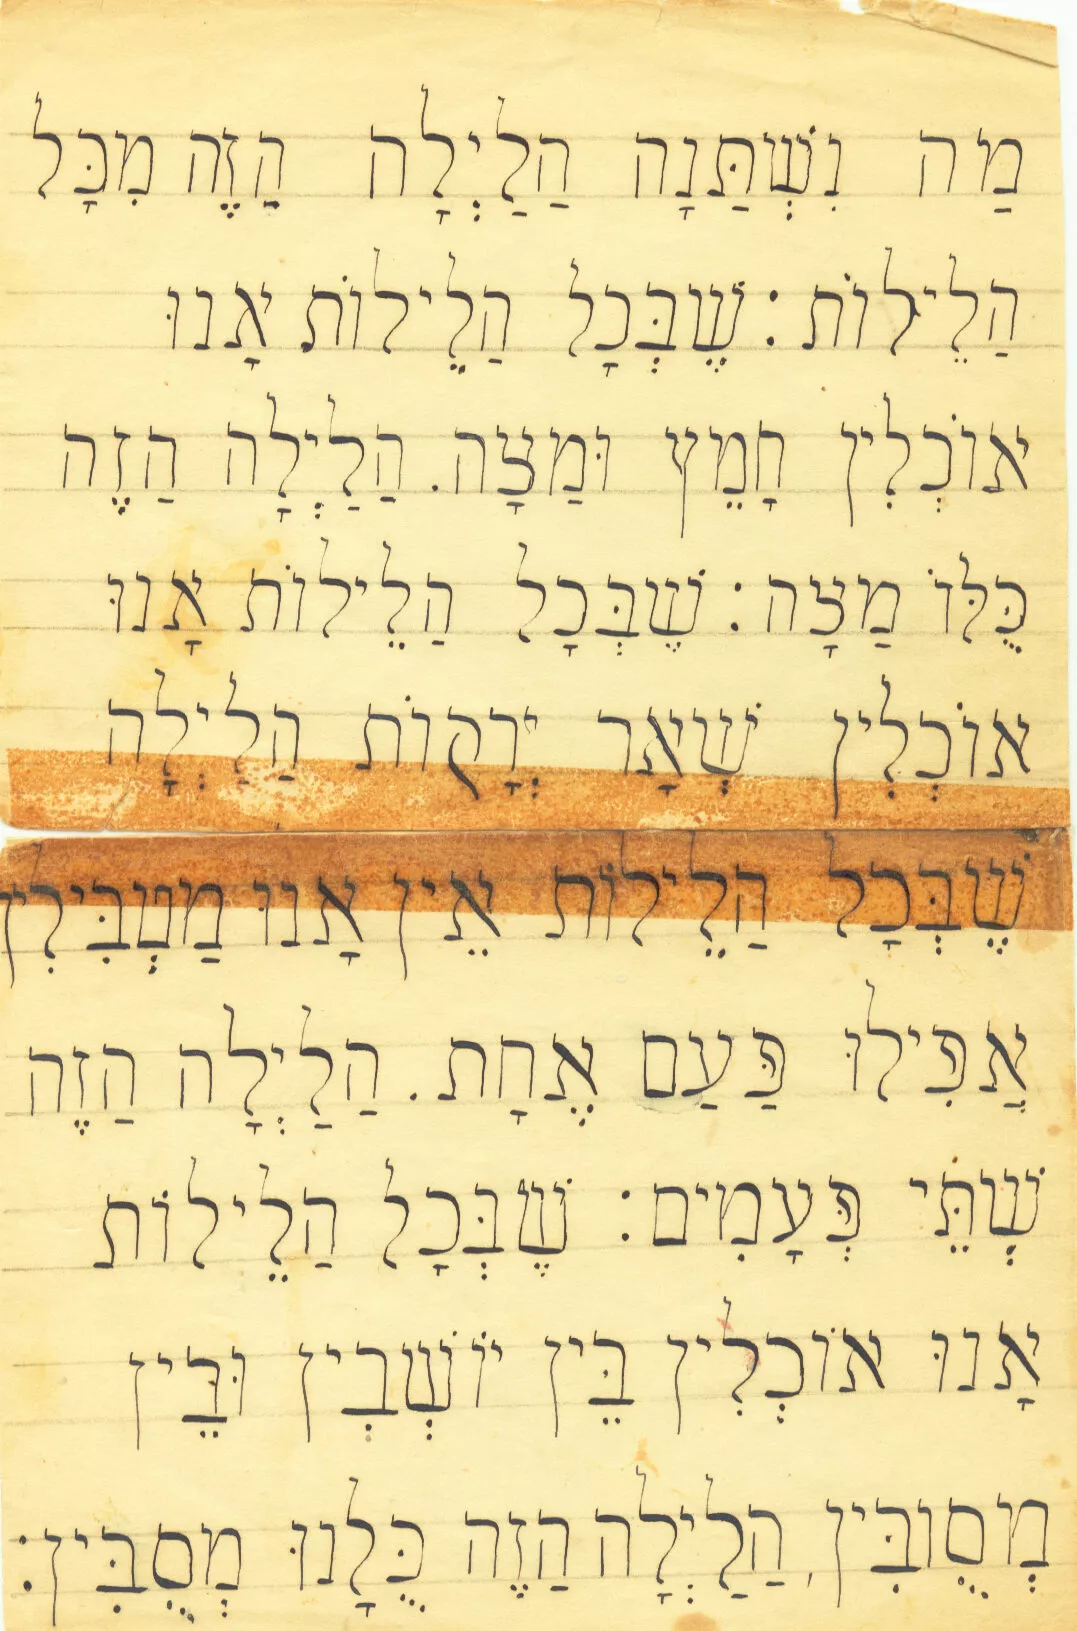 מַה נִשְׁתַּנָה הַלַיְלָה הַזֶה מִכָּל
הַלֵילוֹת: שֶׁבְּכָל הַלֵילוֹת אָנוּ
אוֹכְלִין חָמֵץ וּמַצָה. הַלַיְלָה הַזֶה
כֻּלּוֹ מַצָה: שֶׁבְּכָל הַלֵילוֹת אָנוּ
אוֹכְלִין שְׁאָר יְרָקוֹת הַלַיְלָה
שֶׁבְּכָל הַלֵילוֹת אֵין אָנוּ מַטְבִּילִין
אֲפִילוּ פַּעַם אֶחָת. הַלַיְלָה הַזֶה
שְׁתֵּי פְּעָמִים: שֶׁבְּכָל הַלֵילוֹת
אָנוּ אוֹכְלִין בֵּין יוֹשְׁבְין וּבֵּין
מְסֻובִּין, הַלַיְלָה הַזֶה כֻּלָנוּ מְסֻבִּין: